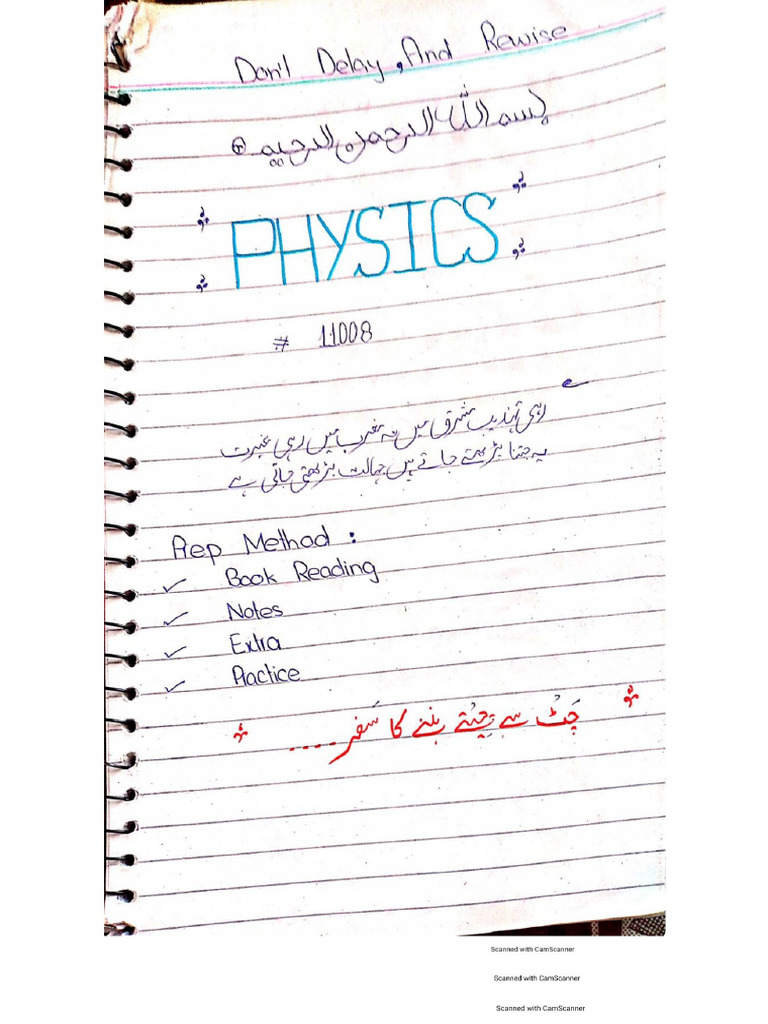 Don't Delay, And Rewise
بسم اللہ الرحمن الرحیم
PHYSICS
# 11008
رہی تہذیب مشرق میں نہ مغرب میں رہی غیرت
یہ جتنا پڑھتے جاتے ہیں جہالت بڑھتی جاتی ہے
Prep Method :
✓ Book Reading
✓ Notes
✓ Extra
✓ Practice
سے بننے کا سفر ....
Scanned with CamScanner
Scanned with CamScanner
Scanned with CamScanner